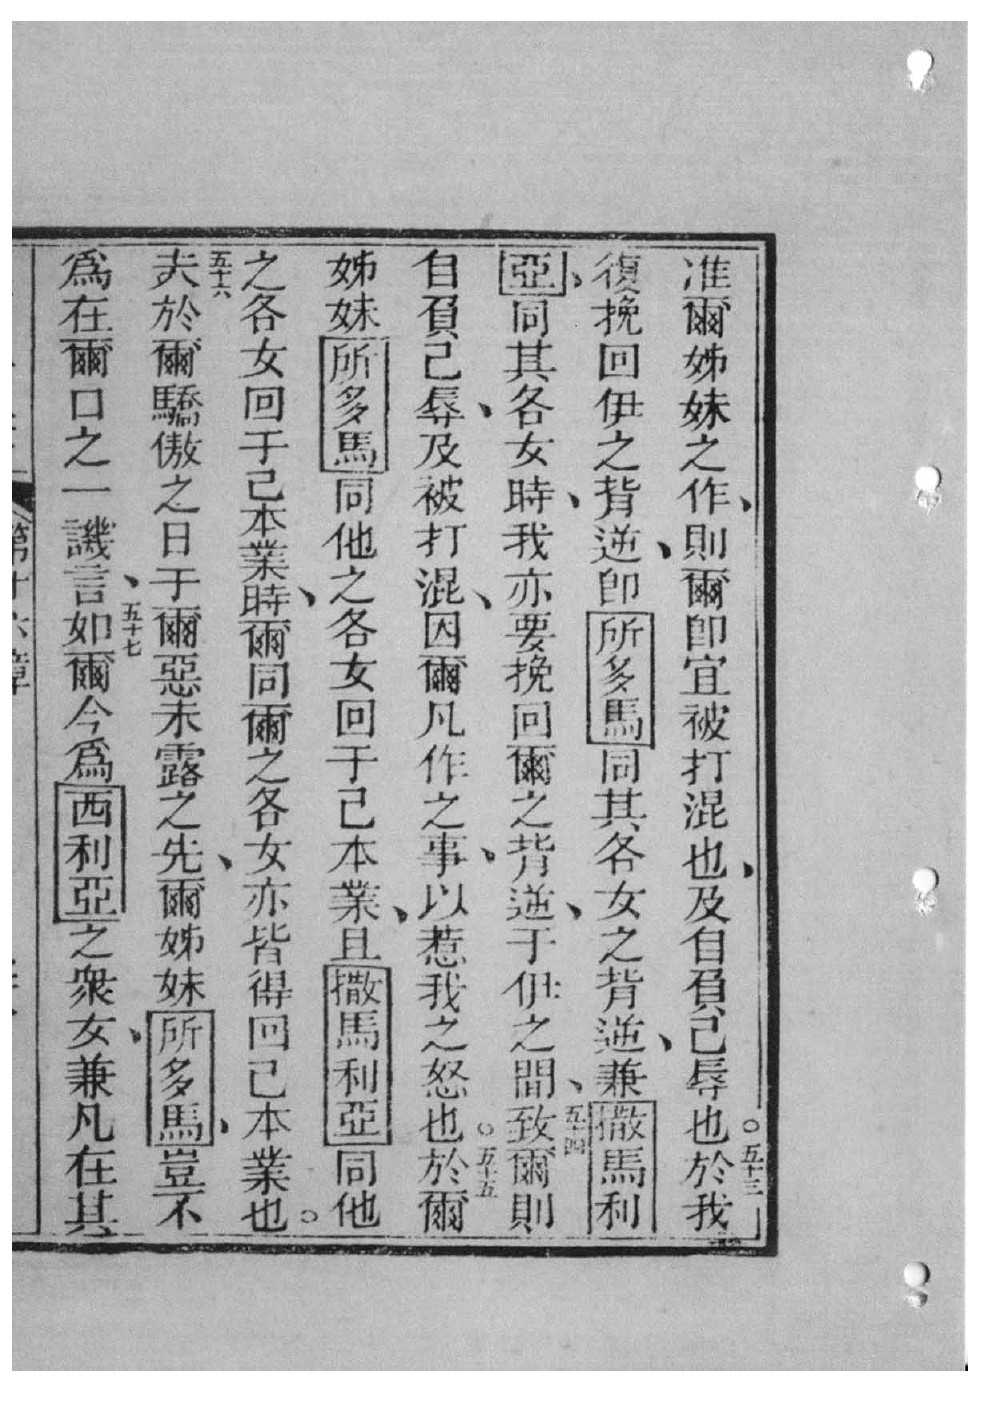 准爾姊妹之作、則爾卽宜被打混也、及自負己辱也○五十三於我
復挽回伊之背逆、卽所多馬同其各女之背逆、兼撒馬利
亞、同其各女時、我亦要挽回爾之背逆、于伊之間、五十四致爾則
自負己辱、及被打混、因爾凡作之事、以惹我之怒也○五十五於爾
姊妹所多馬同他之各女回于己本業、且撒馬利亞同他
之各女回于己本業時、爾同爾之各女亦皆得回己本業也○
五十六夫於爾驕傲之日于爾惡未露之先、爾姊妹所多馬、豈不
爲在爾口之一譏言、五十七如爾今爲西利亞之衆女、兼凡在其
第十六章